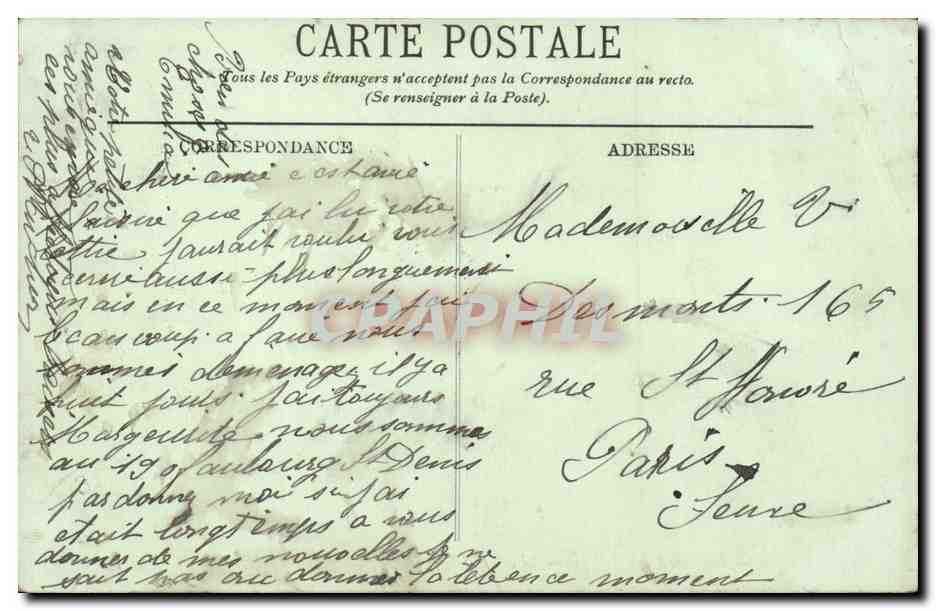 CARTE POSTALE
Tous les Pays étrangers n'acceptent pas la Correspondance au recto.
(Se renseigner à la Poste).
CORRESPONDANCE
ADRESSE
Ma chere amie c est avec
que j'ai lu votre
lettre j'aurait voulu vous
ecrire ausse plus longuement
mais en ce moment j'ai
beaucoup a faire nous
sommes demenager il y a
huit jours. j'ai toujours
Marguerite nous sommes
au 19 faubourg St Denis
pardonner moi si j'ai
etait longtemps a vous
donner de mes nouvelles je ne
sait pas ou donner la tete en ce moment
Bien des
choses a
Emilia
Votre petite
amie qui
vous envoie
ces plus doux baisers
Mademoiselle V
Desmonts. 165
rue St Honoré
Paris
Seine
CPAPHIL